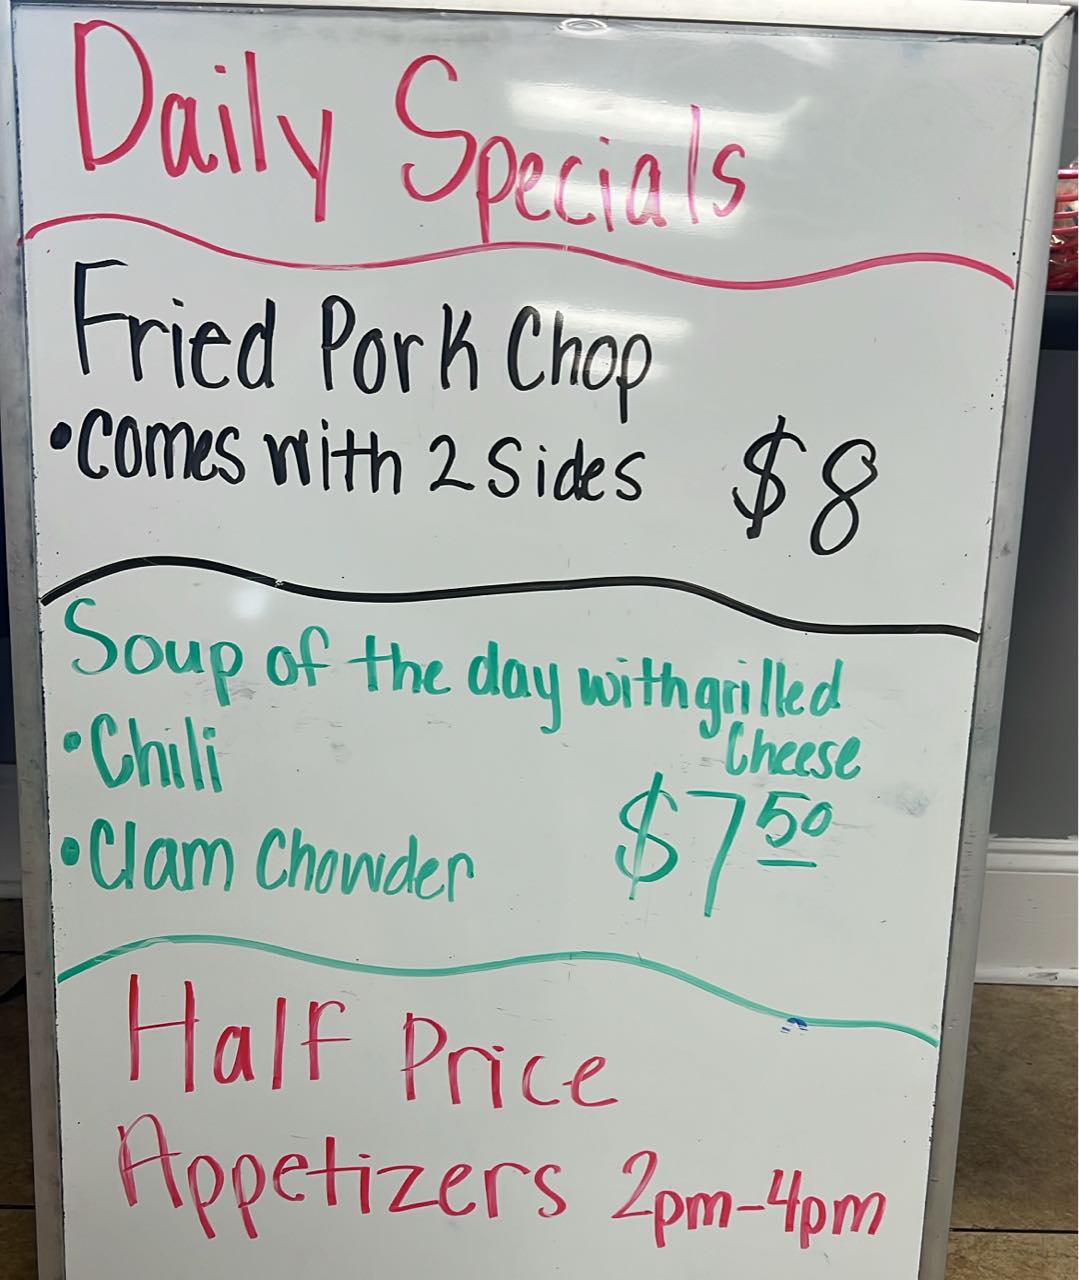 Daily Specials
Fried Pork Chop
•Comes with 2 Sides $8
Soup of the day with grilled
Cheese
•Chili
$7 50
•Clam Chowder
Half Price
Appetizers 2pm-4pm